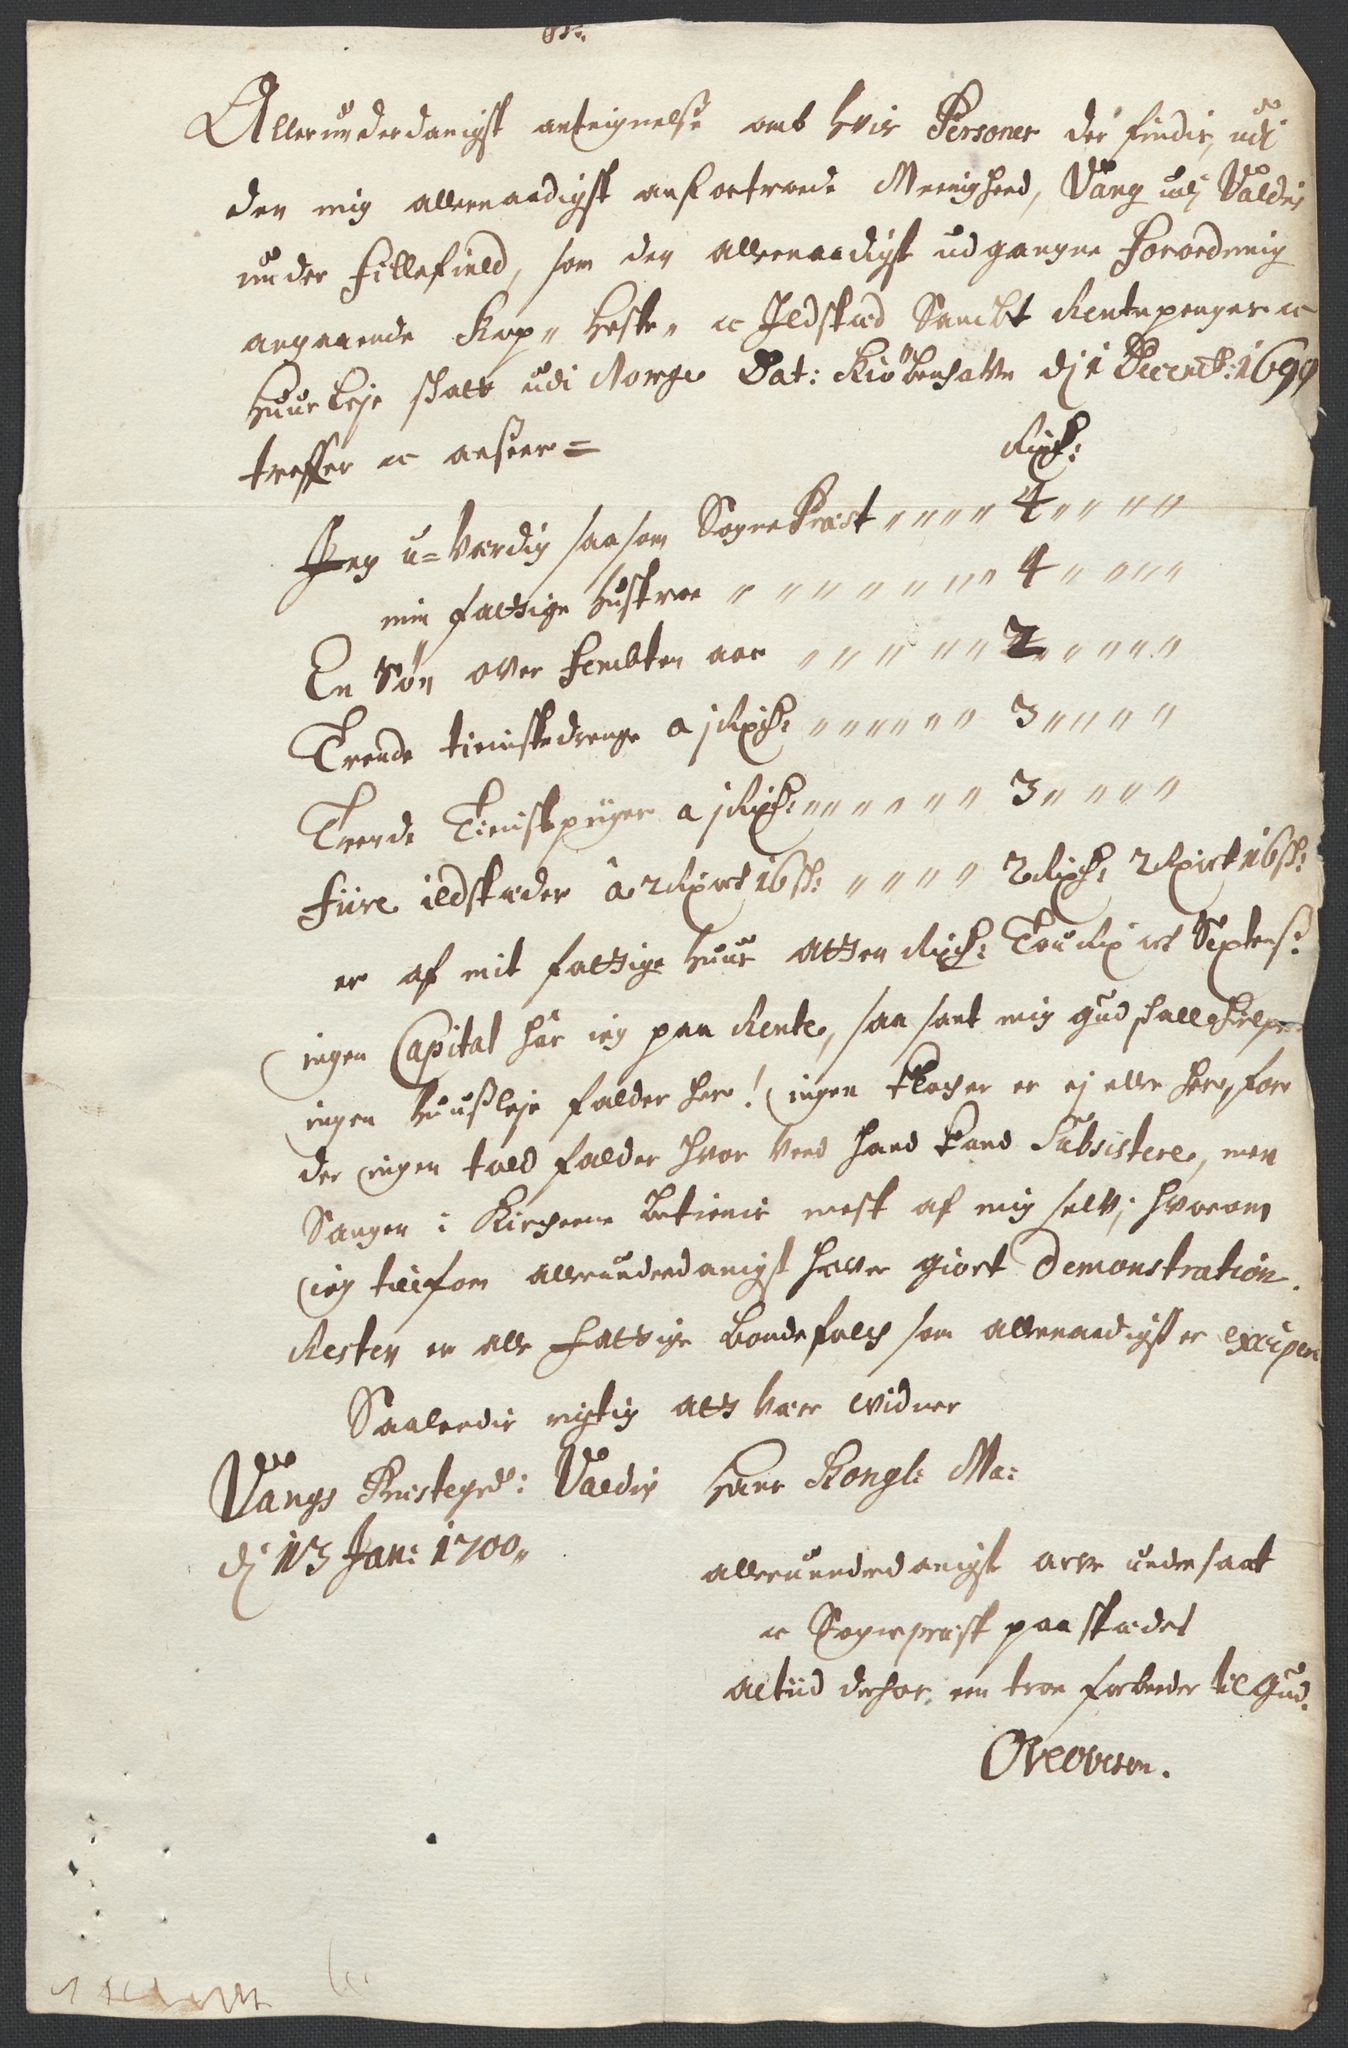 Allerunderdanigst anteignelse omb hvis Personer der findis, udi
den mig allernaadigst anfortroede Meenighed, Vang udj Valdris
under Fillefield, som den allernaadigst udgangne Forordning
angaaende Kop„ Heste„ oc Ildstæd Sambt Rentepenger oc
Huus Leje skatt udi Norge Dat: Kiöbenhafn dj 1 Decemb: 1699
treffer oc anseer=
Rixd:
Jeg u=Værdig saasom Sogne Præst „ „ „ „ 4 „ „ „ „
min fattige Hustroe „ „ „ „ „ „ „ „ 4 „ „ „ „
En Søn over Fembten aar „ „ „ „ „ „ 2 „ „ „ „ „
Trende tienistedrenge a j Rixd: „ „ „ „ „ „ „ 3 „ „ „ „ „
Trende Tienistepiiger a j Rixd: „ „ „ „ „ „ „ 3 „ „ „ „ „
Fiire ildstæder â 2 Rix ort 16 sh: „ „ „ „ „ 2 Rixd: 2 Rix ort 16 sh:
er af mit fattige Huus Atten Rixd: Tou Rix ort Sextenß:
ingen Capital har ieg paa Rente, saa sant mig gud skall hielpe
ingen Huußleje falder her! ingen Klocher er ej eller her, for
der ingen told falder hvor ved hand kand Subsistere, men
Sangen i Kircherne betienis mest af mig selv; hvorom
ieg tilforn allerunderdanigst hafver giort Demonstration.
Resten er alle fattige bondefolch som allernaadigst er excipere
Saaledis rigtig att være vidner
Vangs Præstegrd: Valdris Hans Kongl: Ma:
dj 13 Jan: 1700„
allerunderdanigste arfve undersaat
oc Sognepræst paa stædet
altiid derhos een troe forbeder til Gud.
Oveovesøn.